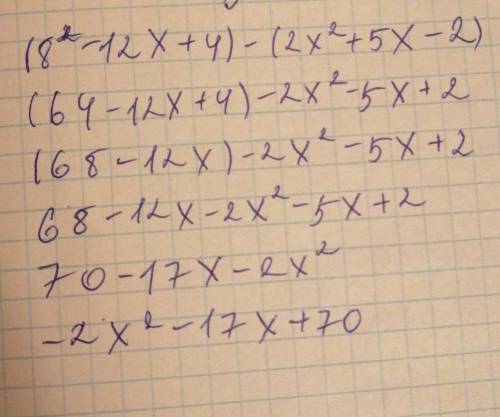 (8² - 12x + 4) - (2x² + 5x - 2)
(64 - 12x + 4) - 2x² - 5x + 2
(68 - 12x) - 2x² - 5x + 2
68 - 12x - 2x² - 5x + 2
70 - 17x - 2x²
-2x² - 17x + 70